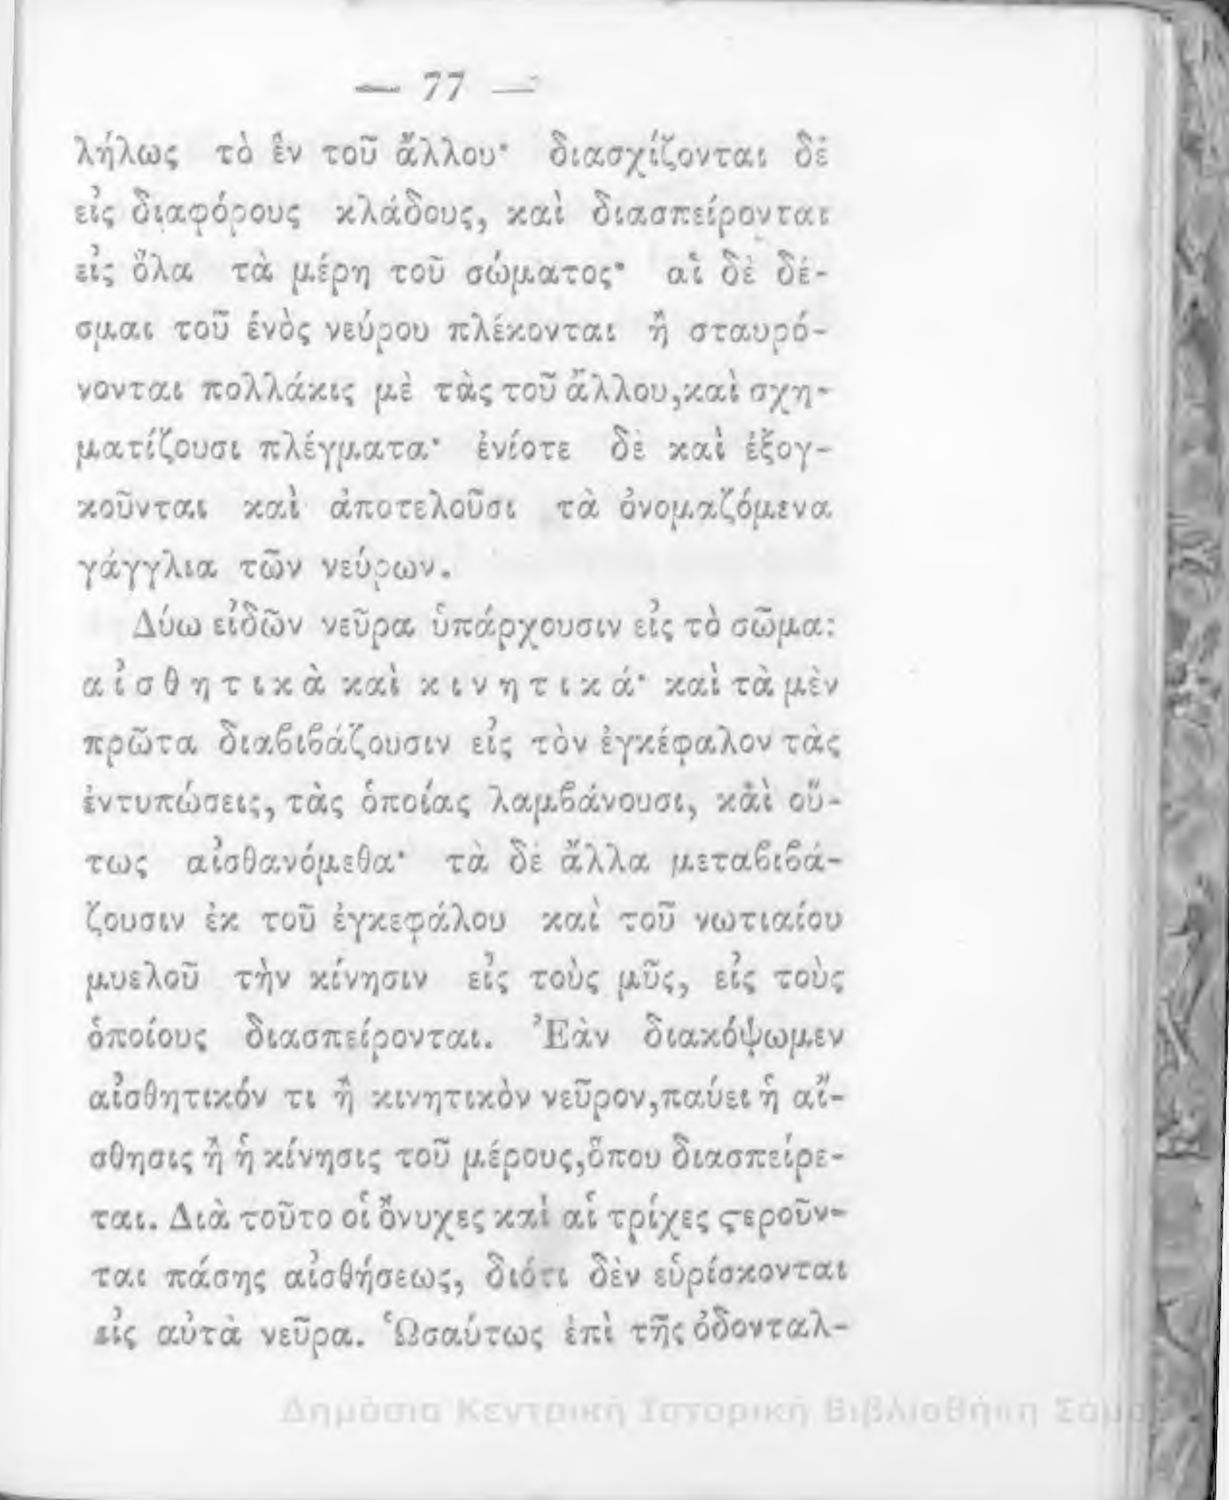 — 77 —
λήλως τὸ ἓν τοῦ ἄλλου· διασχίζονται δὲ
εἰς διαφόρους κλάδους, καὶ διασπείρονται
εἰς ὅλα τὰ μέρη τοῦ σώματος· αἱ δὲ δέ-
σμαι τοῦ ἑνὸς νεύρου πλέκονται ἢ σταυρό-
νονται πολλάκις μὲ τὰς τοῦ ἄλλου, καὶ σχη-
ματίζουσι πλέγματα· ἐνίοτε δὲ καὶ ἐξογ-
κοῦνται καὶ ἀποτελοῦσι τὰ ὀνομαζόμενα
γάγγλια τῶν νεύρων.
Δύω εἰδῶν νεῦρα ὑπάρχουσιν εἰς τὸ σῶμα:
αἰσθητικὰ καὶ κινητικά· καὶ τὰ μὲν
πρῶτα διαϐιϐάζουσιν εἰς τὸν ἐγκέφαλον τὰς
ἐντυπώσεις, τὰς ὁποίας λαμϐάνουσι, καὶ οὕ-
τως αἰσθανόμεθα· τὰ δὲ ἄλλα μεταϐιϐά-
ζουσιν ἐκ τοῦ ἐγκεφάλου καὶ τοῦ νωτιαίου
μυελοῦ τὴν κίνησιν εἰς τοὺς μῦς, εἰς τοὺς
ὁποίους διασπείρονται. Ἐὰν διακόψωμεν
αἰσθητικόν τι ἢ κινητικὸν νεῦρον, παύει ἡ αἴ-
σθησις ἢ ἡ κίνησις τοῦ μέρους, ὅπου διασπείρε-
ται. Διὰ τοῦτο οἱ ὄνυχες καὶ αἱ τρίχες ϛεροῦν-
ται πάσης αἰσθήσεως, διότι δὲν εὑρίσκονται
εἰς αὐτὰ νεῦρα. Ὡσαύτως ἐπὶ τῆς ὀδονταλ-
Δημόσια Κεντρική Ιστορική Βιβλιοθήκη Σάμο